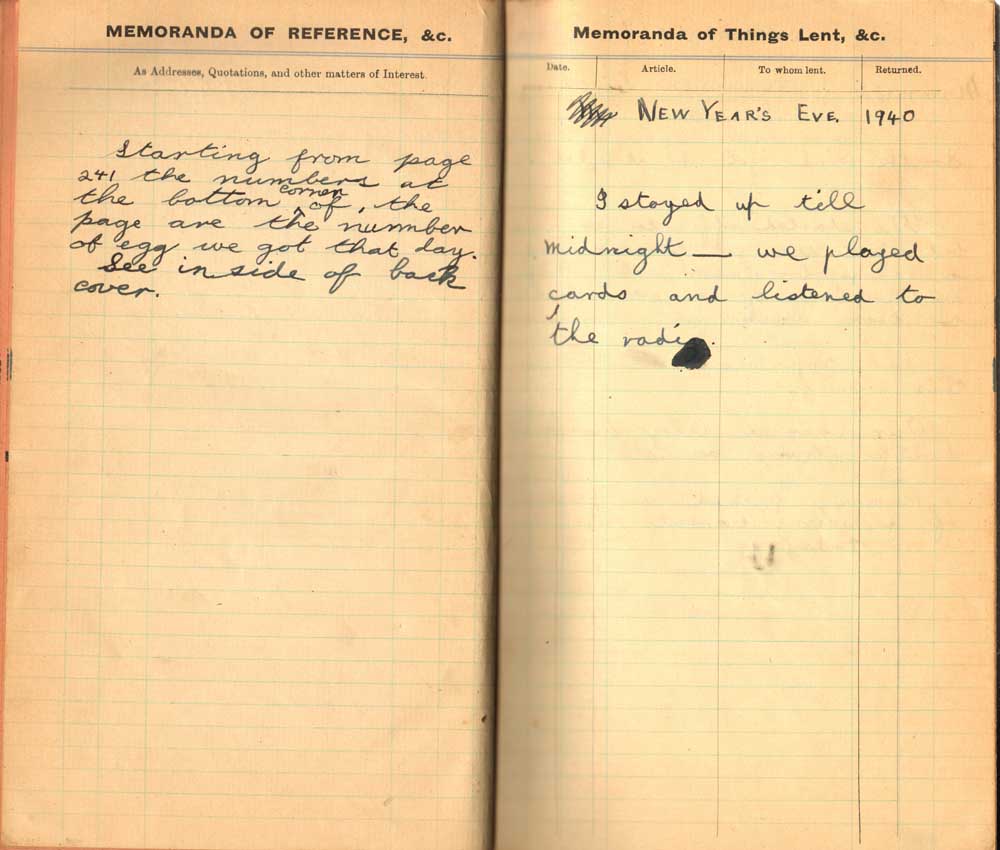 MEMORANDA OF REFERENCE, &c.
As Addresses, Quotations, and other matters of Interest.
Starting from page
241 the numbers at
the bottom corner of, the
page are the number
of egg we got that day.
See inside of back
cover.
Memoranda of Things Lent, &c.
Date. Article. To whom lent. Returned.
NEW YEAR'S EVE. 1940
I stayed up till
midnight — we played
cards and listened to
the radio.